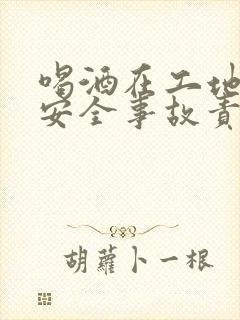 喝酒在工地
安全事故责
胡蘿卜一根